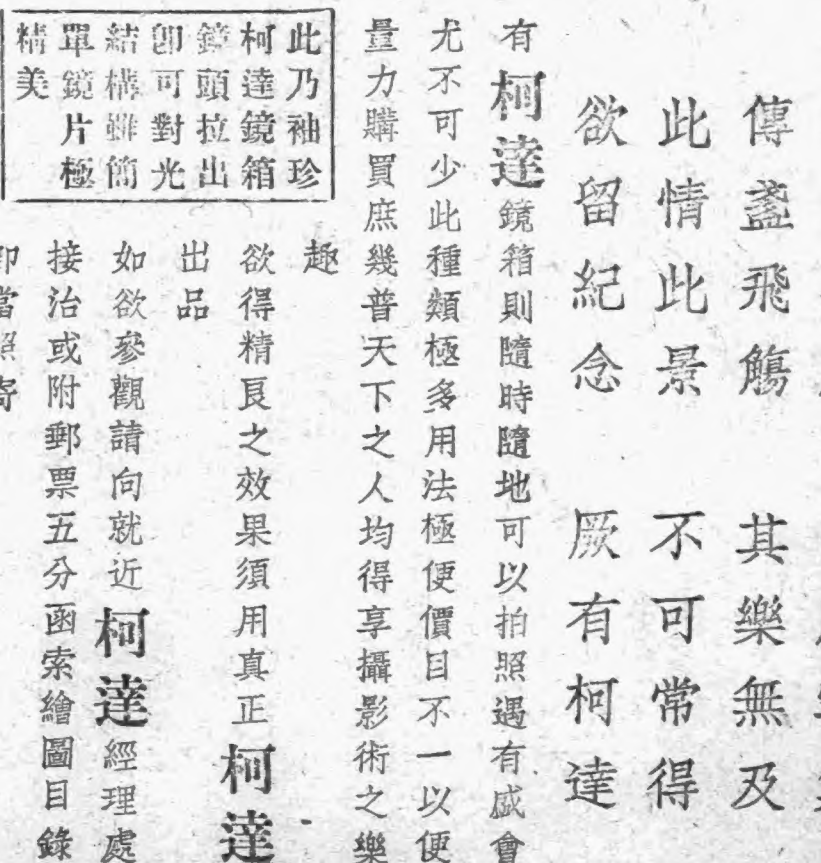 傳盞飛觴　其樂無及
此情此景　不可常得
欲留紀念　厥有柯達
有柯達鏡箱則隨時隨地可以拍照遇有盛會
尤不可少此種類極多用法極便價目不一以便
量力購買庶幾普天下之人均得享攝影術之樂
趣
欲得精良之效果須用真正柯達
出品
如欲參觀請向就近柯達經理處
接洽或附郵票五分函索繪圖目錄
即當照寄
此乃袖珍
柯達鏡箱
鏡頭拉出
即可對光
結構雖簡
單鏡片極
精美